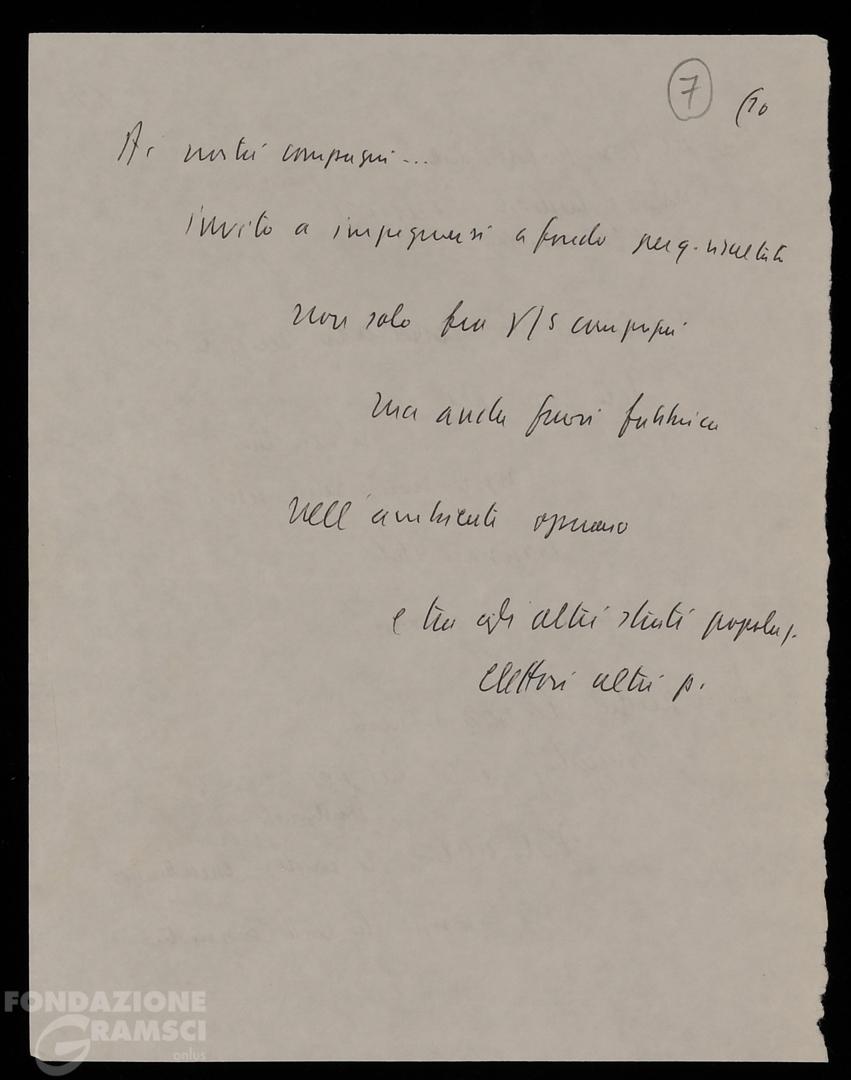 7 (10
Ai nostri compagni...
invito a impegnarsi a fondo per q. risultati
non solo fra V/s compagni
ma anche fuori fabbrica
nell'ambiente operaio
e tra gli altri strati popolari
elettori altri p.
FONDAZIONE
GRAMSCI
onlus